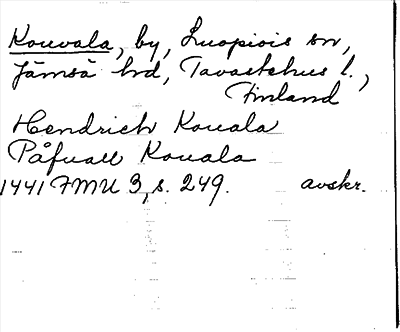 Kouvala, by, Luopiois sn,
Jämsä hd, Tavastehus l.,
Finland
Hendrich Kouala
Påfuall Kouala
1441 FMU 3, s. 249. avskr.